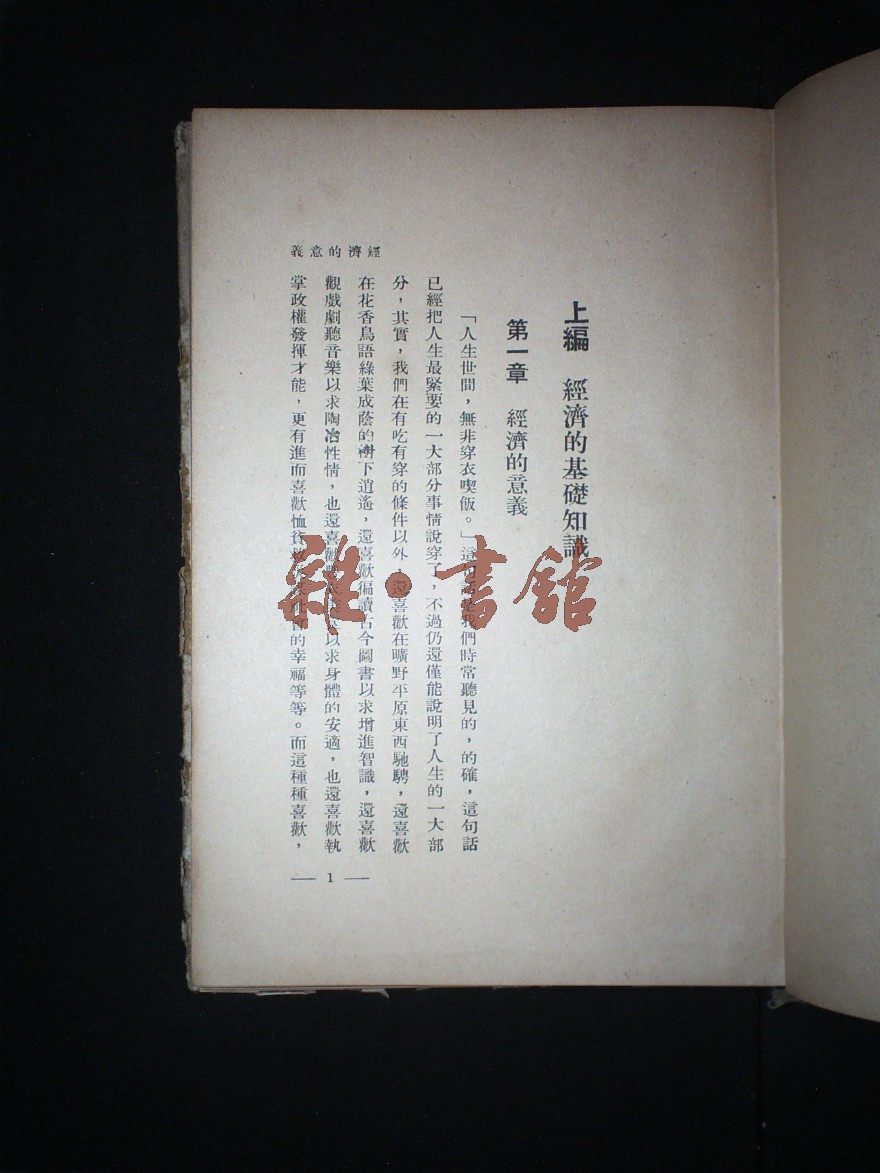 經濟的意義
上編 經濟的基礎知識
第一章 經濟的意義
「人生世間，無非穿衣喫飯。」這句話是我們時常聽見的，的確，這句話
已經把人生最緊要的一大部分事情說穿了，不過仍還僅能說明了人生的一大部
分，其實，我們在有吃有穿的條件以外，還喜歡在曠野平原東西馳騁，還喜歡
在花香鳥語綠葉成蔭的樹下逍遙，還喜歡徧讀古今圖書以求增進智識，還喜歡
觀戲劇聽音樂以求陶冶性情，也還喜歡以求身體的安適，也還喜歡執
掌政權發揮才能，更有進而喜歡恤貧的幸福等等。而這種種喜歡，
— 1 —
雜·書館